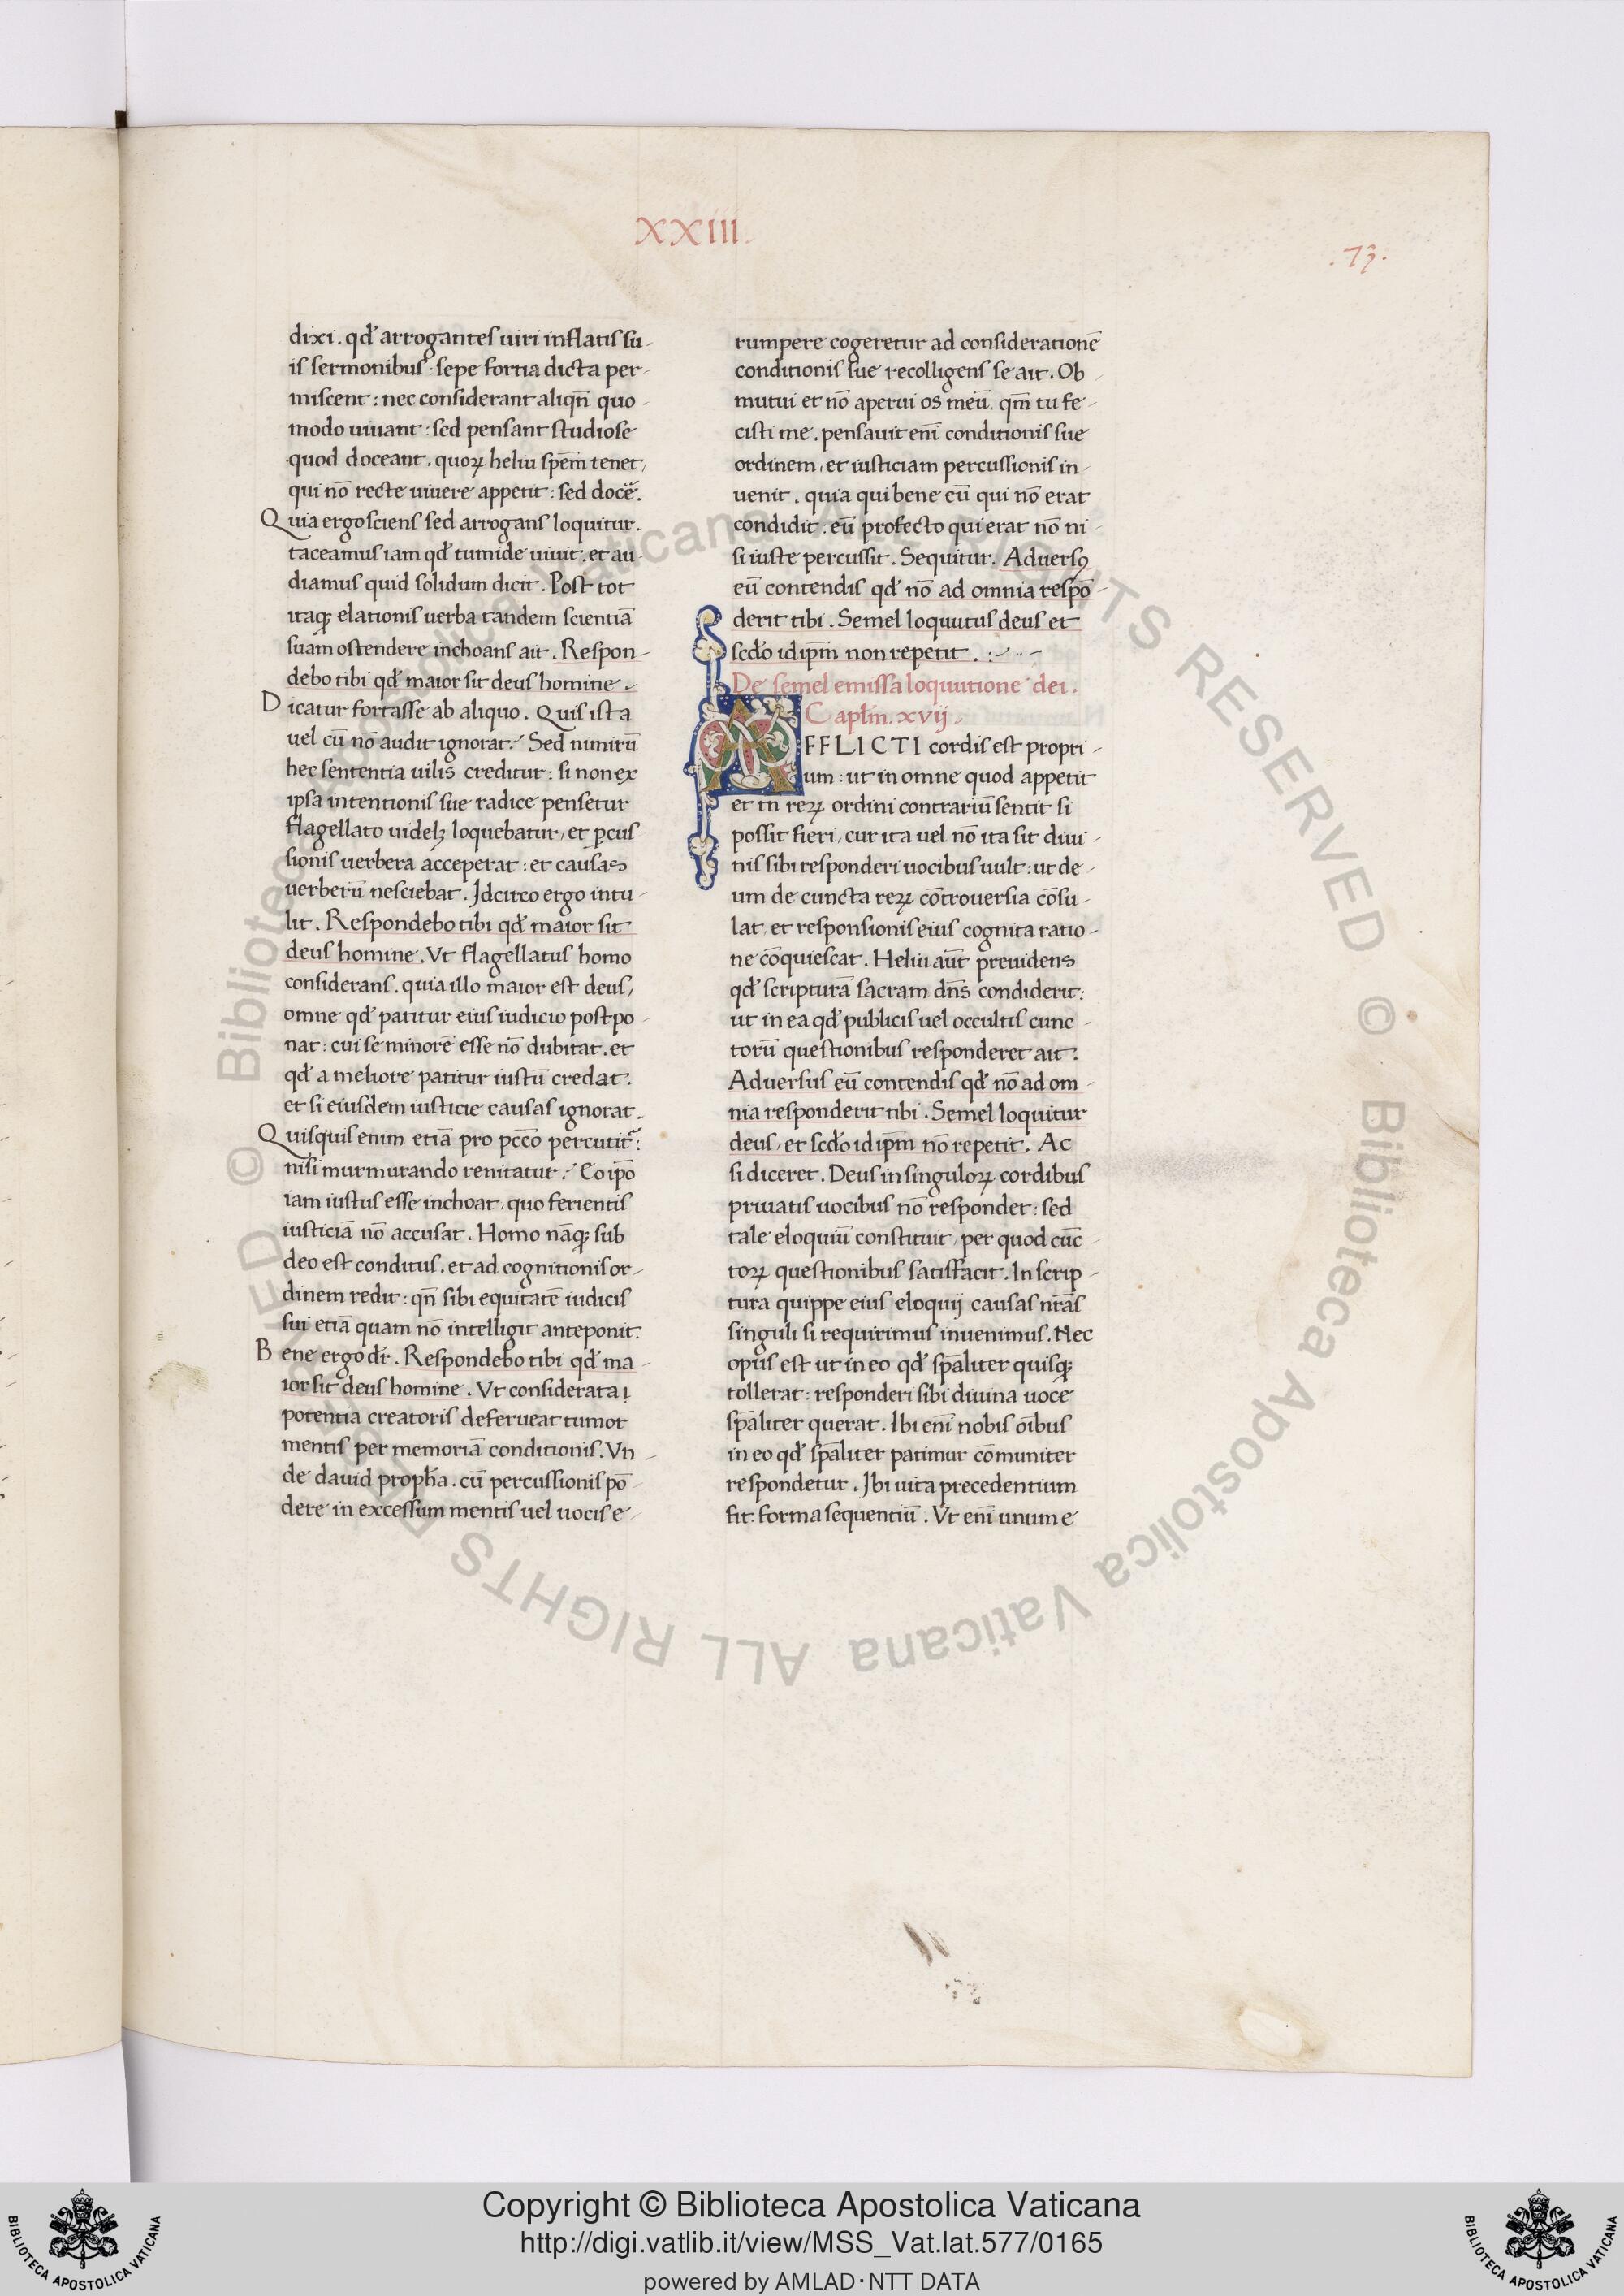 XXIII.
.73.
dixi. qđ arrogantes uiri inflatis su-
is sermonibus: sepe fortia dicta per-
miscent: nec considerant aliqn̄ quo-
modo uiuant: sed pensant studiose
quod doceant. quoꝝ heliu spēm tenet,
qui nō recte uiuere appetit: sed docē.
Quia ergo sciens sed arrogans loquitur.
taceamus iam qđ tumide uiuit. et au-
diamus quid solidum dicit. Post tot
itaqꝫ elationis uerba tandem scientiā
suam ostendere inchoans ait. Respon-
debo tibi qđ maior sit deus homine.
Dicatur fortasse ab aliquo. Quis ista
uel cū nō audit ignorat? Sed nimirū
hec sententia uilis creditur: si non ex
ipsa intentionis sue radice pensetur
flagellato uidelꝫ loquebatur, et ꝑcus
sionis uerbera acceperat: et causas
uerberū nesciebat. Idcirco ergo intu-
lit. Respondebo tibi qđ maior sit
deus homine. Vt flagellatus homo
considerans. quia illo maior est deus,
omne qđ patitur eius iudicio postpo-
nat: cui se minorē esse nō dubitat. et
qđ a meliore patitur iustū credat.
et si eiusdem iusticie causas ignorat.
Quisquis enim etiā pro pccō percutit̃:
nisi murmurando renitatur? Eo ip̄o
iam iustus esse inchoat, quo ferientis
iusticiā nō accusat. Homo nāqꝫ sub
deo est conditus. et ad cognitionis or-
dinem redit: qn̄ sibi equitatē iudicis
sui etiā quam nō intelligit anteponit.
Bene ergo dr̄. Respondebo tibi qđ ma-
ior sit deus homine. Vt considerata
potentia creatoris deferueat tumor
mentis per memoriā conditionis. Vn-
de dauid proph̄a. cū percussionis pō-
dere in excessum mentis uel uocis e-
rumpere cogeretur ad considerationē
conditionis sue recolligens se ait. Ob-
mutui et nō aperui os meū, qm̄ tu fe-
cisti me. pensauit enī conditionis sue
ordinem, et iusticiam percussionis in-
uenit. quia qui bene eū qui nō erat
condidit: eū profecto qui erat nō ni-
si iuste percussit. Sequitur. Aduersꝰ
eū contendis qđ nō ad omnia respō-
derit tibi. Semel loquutus deus et
scđo idip̄m non repetit.
De semel emissa loquutione dei.
Capl̄m. xvij.
AFFLICTI cordis est propri-
um: ut in omne quod appetit
et in reꝝ ordini contrariū sentit si
possit fieri, cur ita uel nō ita sit diui-
nis sibi responderi uocibus uult: ut de-
um de cuncta reꝝ cōtrouersia cōsu-
lat, et responsionis eius cognita ratio-
ne cōquiescat. Heliu aūt preuidens
qđ scripturā sacram dn̄s condiderit:
ut in ea qđ publicis uel occultis cunc-
torū questionibus responderet ait.
Aduersus eū contendis qđ nō ad om-
nia responderit tibi. Semel loquitur
deus, et scđo idip̄m nō repetit. Ac
si diceret. Deus in singuloꝝ cordibus
priuatis uocibus nō respondet: sed
tale eloquiū constituit, per quod cūc-
toꝝ questionibus satisfacit. In scrip-
tura quippe eius eloquij causas nr̄as
singuli si requirimus inuenimus. Nec
opus est ut in eo qđ sp̄aliter quisqꝫ
tollerat: responderi sibi diuina uoce
sp̄aliter querat. Ibi enī nobis oībus
in eo qđ sp̄aliter patimur cōmuniter
respondetur. Ibi uita precedentium
fit forma sequentiū. Vt enī unum e
© Biblioteca Apostolica Vaticana ALL RIGHTS RESERVED © Biblioteca Apostolica Vaticana ALL RIGHTS RESERVED
Copyright © Biblioteca Apostolica Vaticana
http://digi.vatlib.it/view/MSS_Vat.lat.577/0165
powered by AMLAD·NTT DATA
BIBLIOTECA APOSTOLICA VATICANA
BIBLIOTECA APOSTOLICA VATICANA